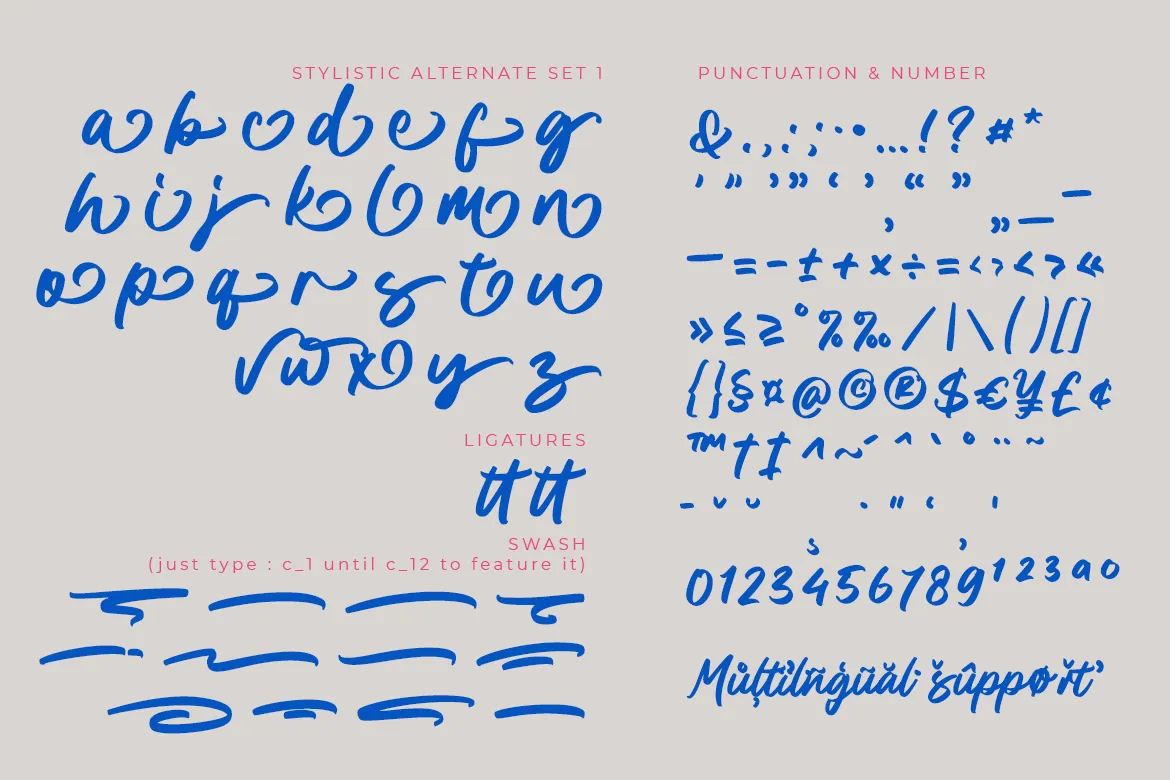 STYLISTIC ALTERNATE SET 1
a b c d e f g
h i j k l m n
o p q r s t u
v w x y z
LIGATURES
tt tt
SWASH
(just type : c_1 until c_12 to feature it)
PUNCTUATION & NUMBER
& . , : ; · • … ! ? # *
' " ’ ” ‘ ’ “ ”
, „ — –
— = - ± + × ÷ = < > < > «
» ≤ ≥ ° % ‰ / | \ ( ) [ ]
{ } § ¤ @ © ® $ € ¥ £ ¢
™ † ‡ ^ ~ ´ ^ ` ° ¨ ~
0 1 2 3 4 5 6 7 8 9 ¹ ² ³ ª º
Můļtilñġūăl šûppøřt